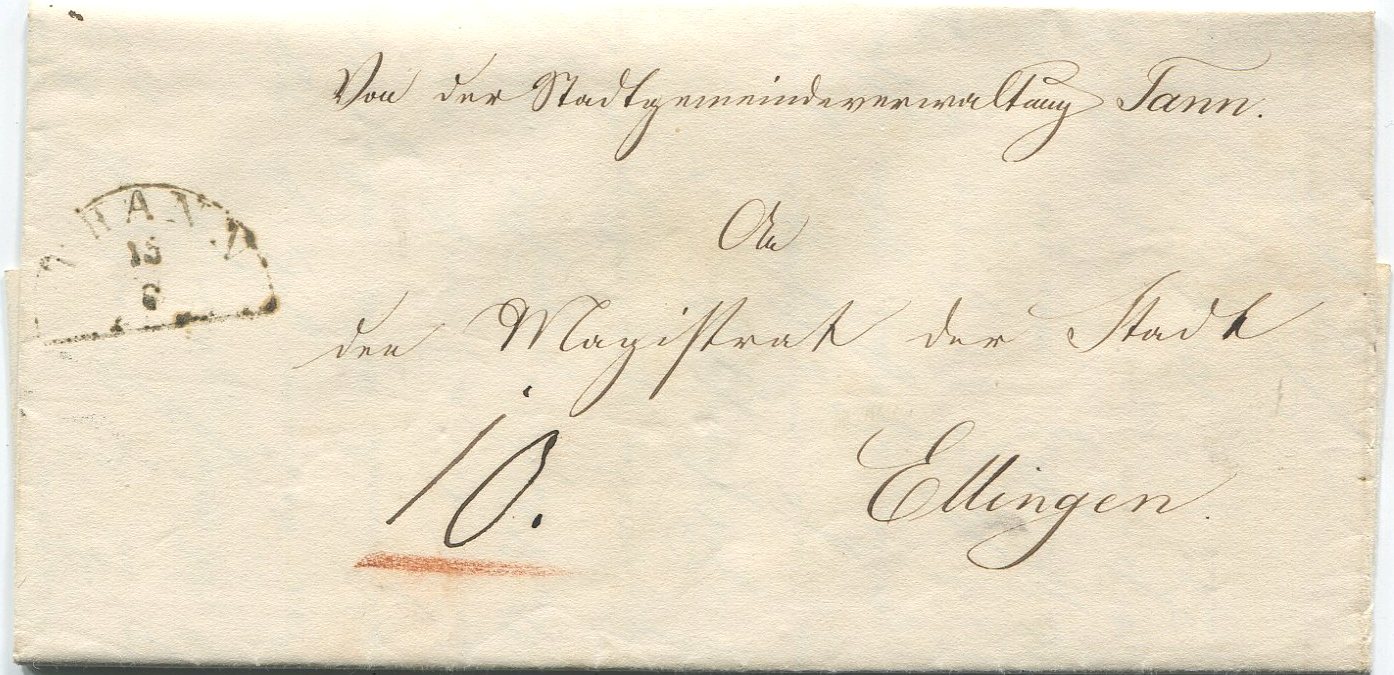 Von der Stadtgemeindeverwaltung Tann.
THANN
15
6
An
den Magistrat der Stadt
10.
Ellingen.